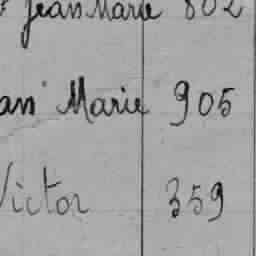 Jean Marie 802
an Marie 905
Victor 359